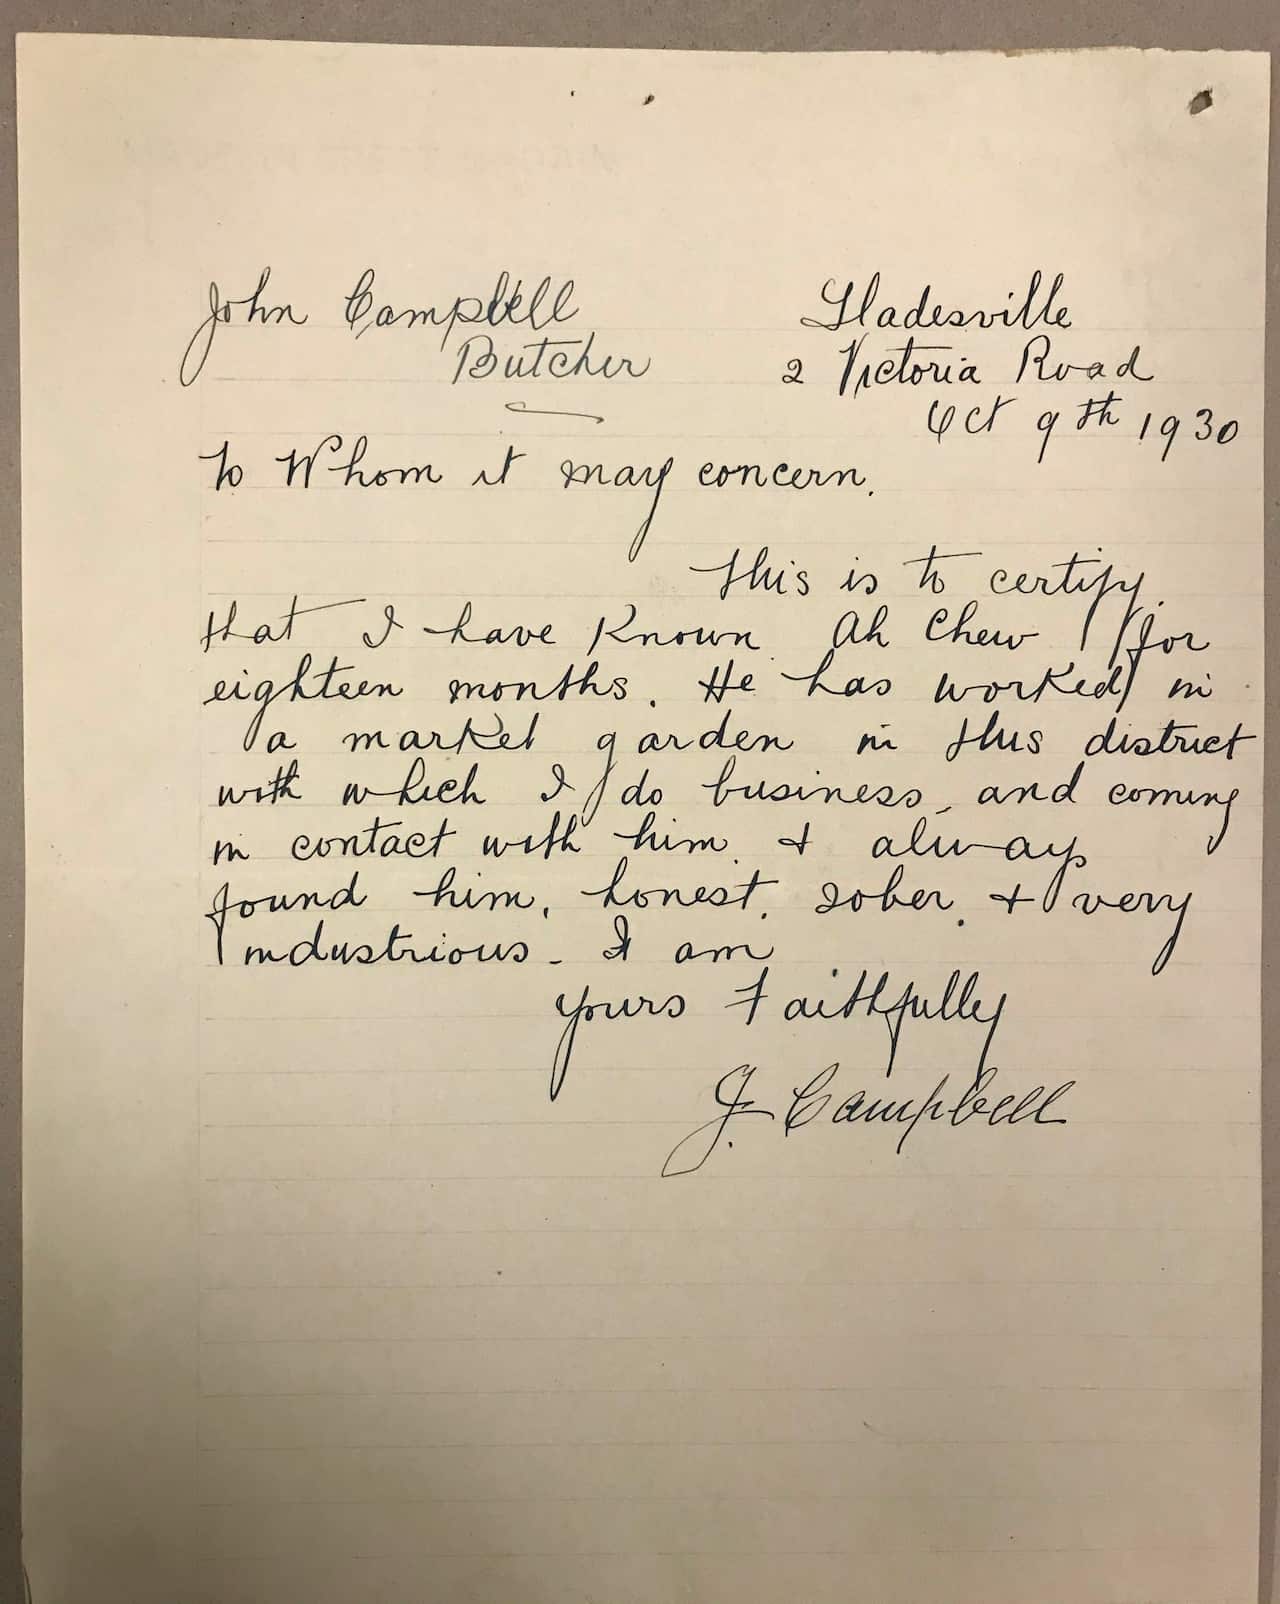 John Campbell
Butcher
Gladesville
2 Victoria Road
Oct 9th 1930
To Whom it may concern.
This is to certify.
that I have Known Ah Chew for
eighteen months. He has worked in
a market garden in this district
with which I do business, and coming
in contact with him. & always
found him, honest, sober, & very
industrious. I am
yours Faithfully
J. Campbell